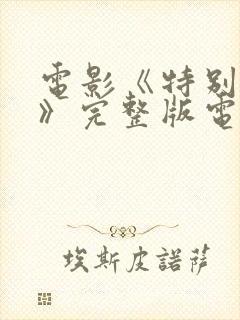 電影《特別
》完整版電
埃斯皮諾薩